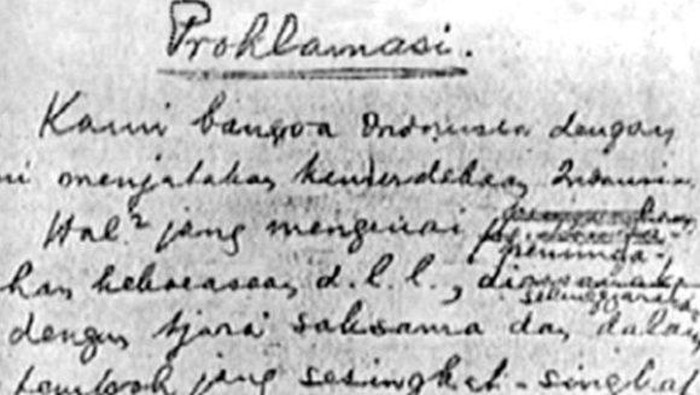 Proklamasi.
Kami bangsa Indonesia dengan
ni menjatakan kemerdekaan Indonesi
Hal² jang mengenai peminda-
han kekoeasaan d.l.l., diselenggaraka
dengan tjara saksama dan dalam
tempoh jang sesingkat-singkat